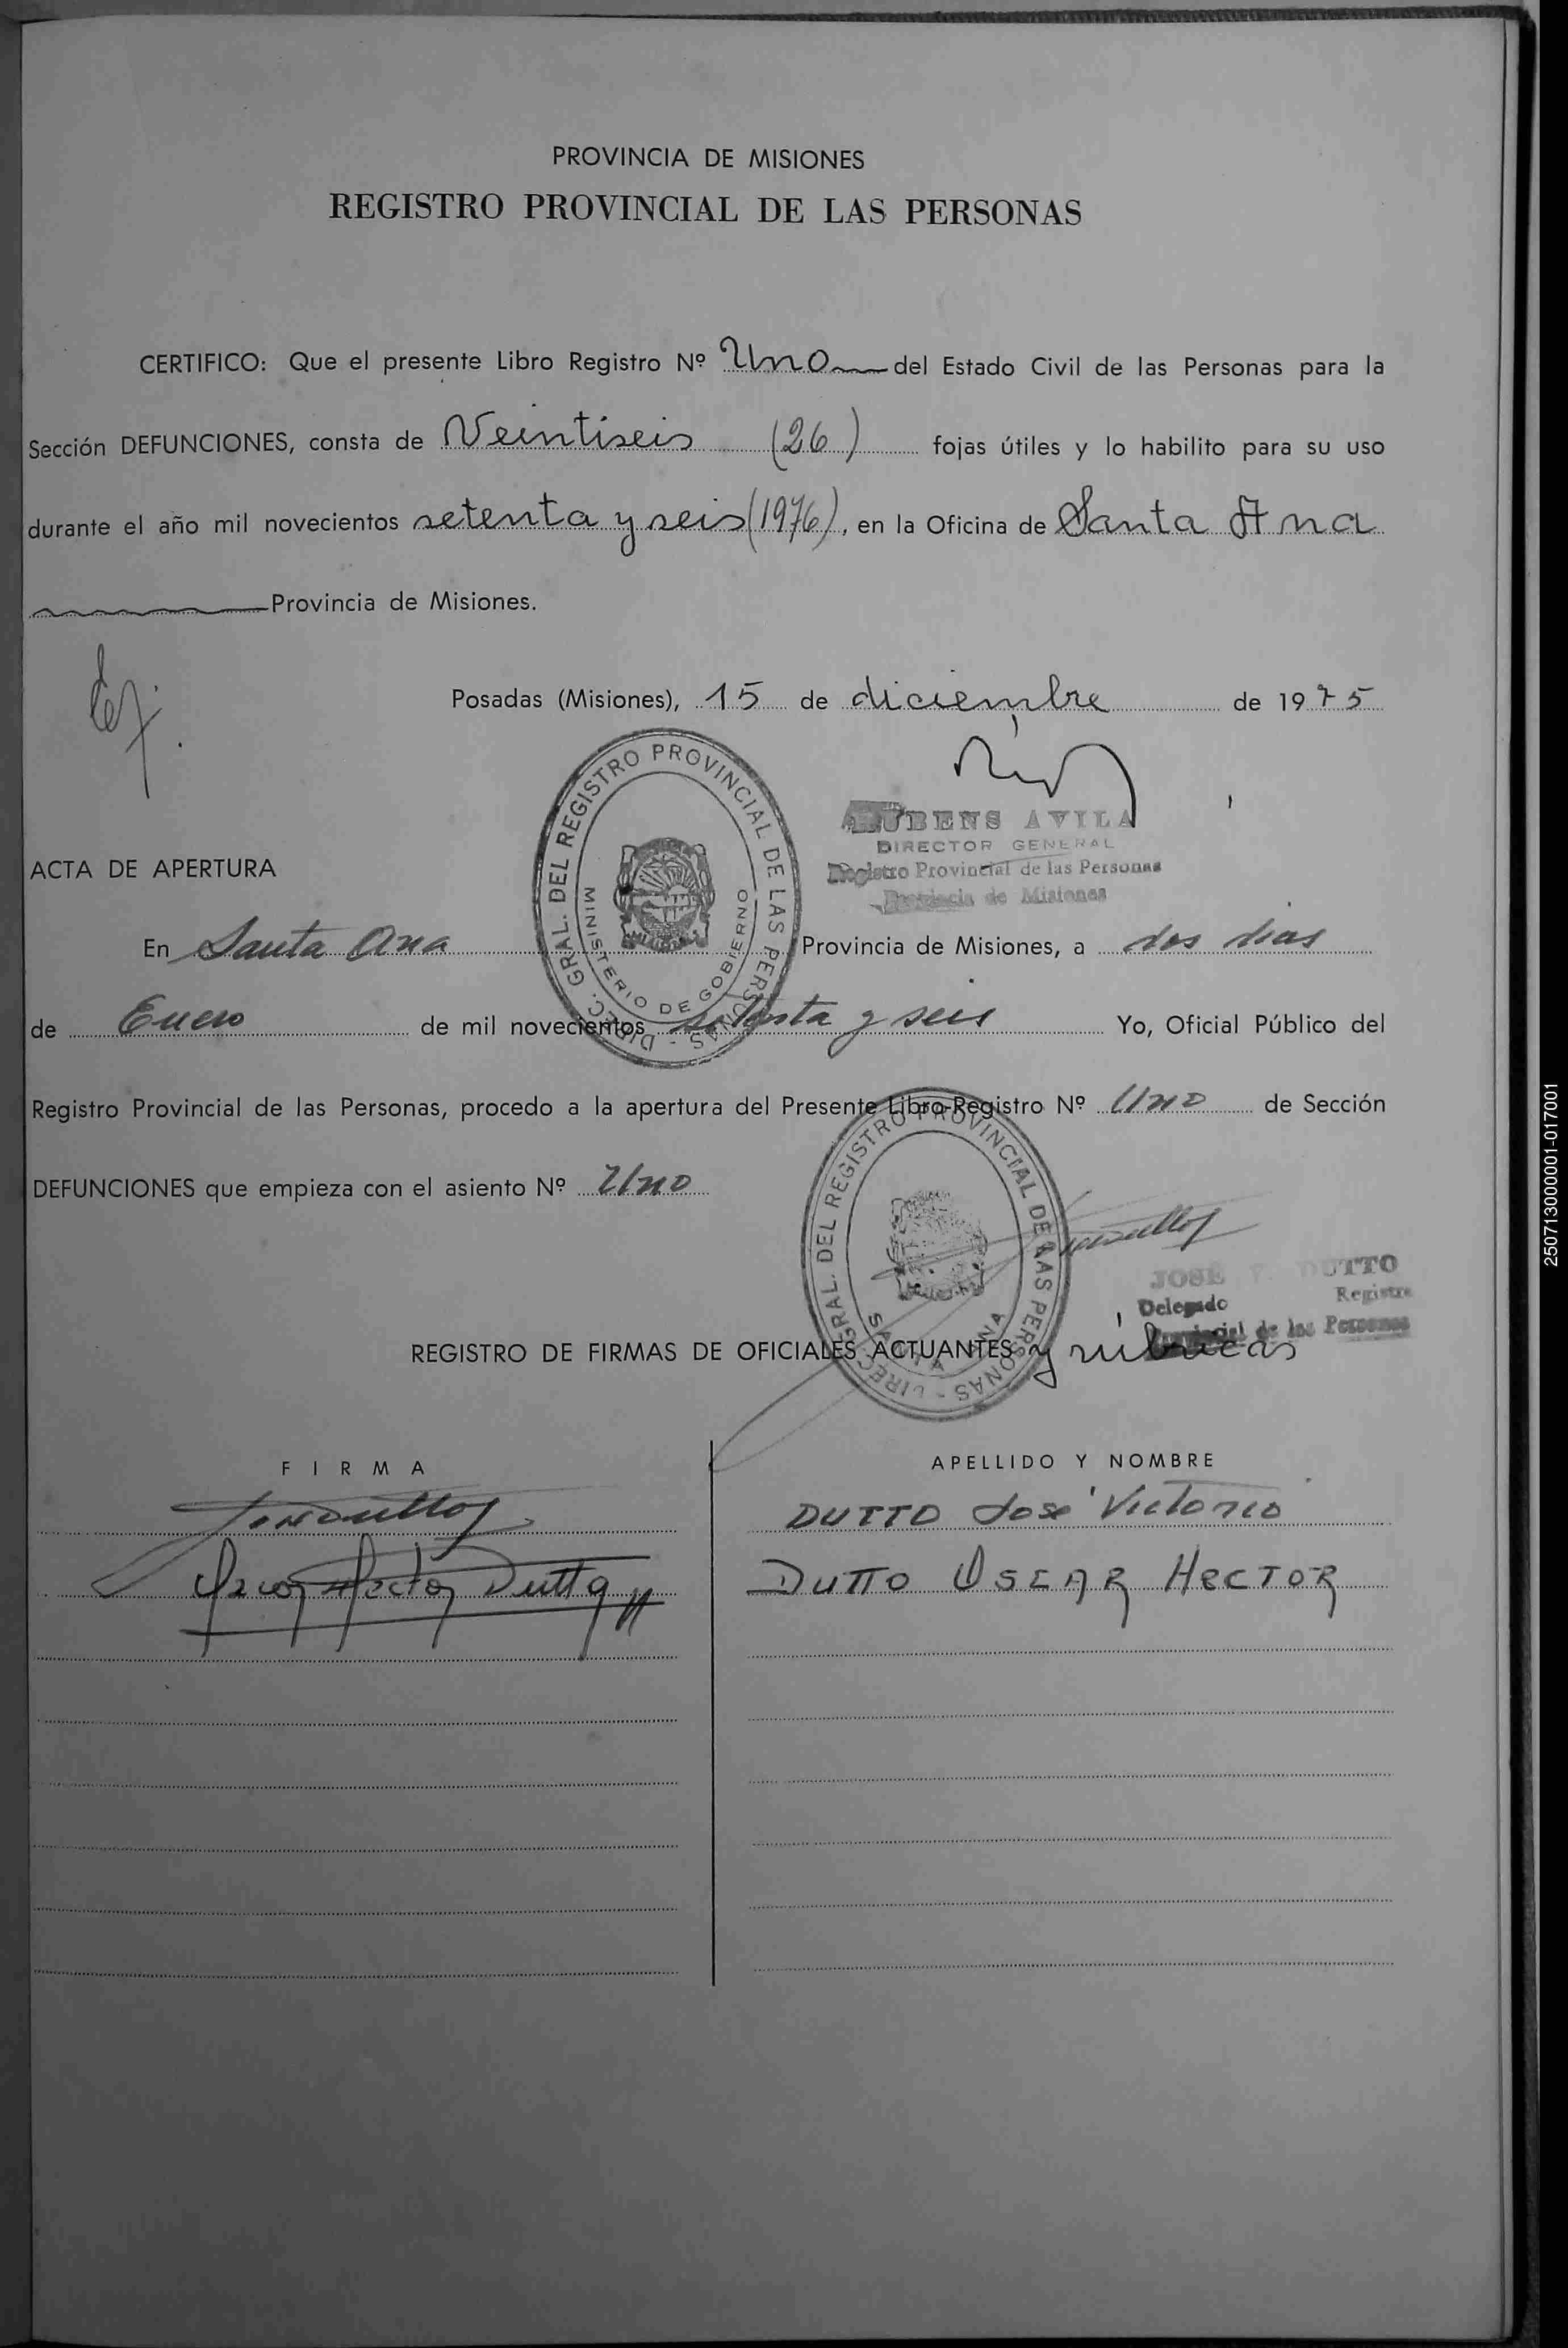 PROVINCIA DE MISIONES
REGISTRO PROVINCIAL DE LAS PERSONAS
CERTIFICO: Que el presente Libro Registro Nº Uno del Estado Civil de las Personas para la
Sección DEFUNCIONES, consta de Veintiseis (26) fojas útiles y lo habilito para su uso
durante el año mil novecientos setenta y seis (1976), en la Oficina de Santa Ana
Provincia de Misiones.
Posadas (Misiones), 15 de diciembre de 1975
DIREC. GRAL. DEL REGISTRO PROVINCIAL DE LAS PERSONAS -
MINISTERIO DE GOBIERNO
RUBENS AVILA
DIRECTOR GENERAL
Registro Provincial de las Personas
Provincia de Misiones
ACTA DE APERTURA
En Santa Ana Provincia de Misiones, a dos dias
de Enero de mil novecientos setenta y seis Yo, Oficial Público del
Registro Provincial de las Personas, procedo a la apertura del Presente Libro-Registro Nº Uno de Sección
DEFUNCIONES que empieza con el asiento Nº Uno
DIREC. GRAL. DEL REGISTRO PROVINCIAL DE LAS PERSONAS -
SANTA ANA
JOSE DUTTO
Delegado Registro
Provincial de las Personas
REGISTRO DE FIRMAS DE OFICIALES ACTUANTES y rúbricas
FIRMA APELLIDO Y NOMBRE
DUTTO José Victorio
Oscar Hector Dutto DUTTO OSCAR HECTOR
2507130000001-017001